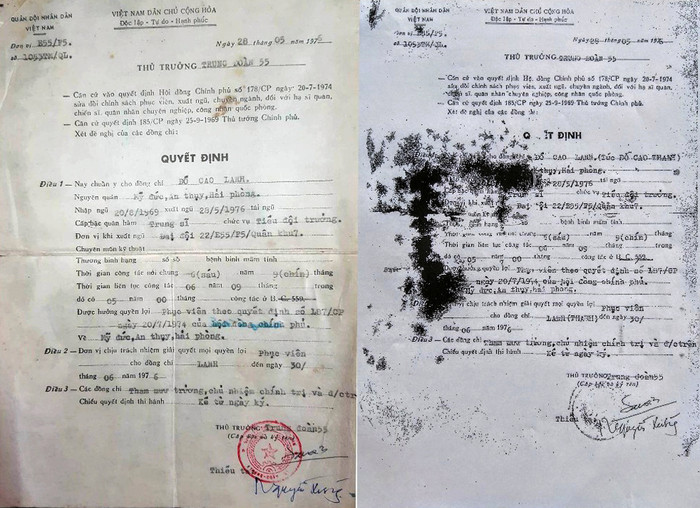 QUÂN ĐỘI NHÂN DÂN
VIỆT NAM
Đơn vị E55/F5.
số 1053TK/QL.
VIỆT NAM DÂN CHỦ CỘNG HÒA
Độc lập - Tự do - Hạnh phúc
Ngày 28 tháng 05 năm 1976
THỦ TRƯỞNG TRUNG ĐOÀN 55
— Căn cứ vào quyết định Hội đồng Chính phủ số 178/CP ngày 20-7-1974
sửa đổi chính sách phục viên, xuất ngũ, chuyển ngành, đối với hạ sĩ quan,
chiến sĩ, quân nhân chuyên nghiệp, công nhân quốc phòng.
— Căn cứ quyết định 185/CP ngày 25-9-1969 Thủ tướng Chính phủ.
Xét đề nghị của các đồng chí:
QUYẾT ĐỊNH
Điều 1 — Nay chuẩn y cho đồng chí ĐỖ CAO LANH.
Nguyên quán Kỹ đức, An thụy, Hải phòng.
Nhập ngũ 20/8/1969 xuất ngũ 28/5/1976 tái ngũ
Cấp bậc quân hàm Trung sĩ chức vụ Tiểu đội trưởng.
Đơn vị khi xuất ngũ Đại đội 22/E55/F5/Quân khu7.
Chuyên môn kỹ thuật
Thương binh hạng số sổ bệnh binh mãn tính
Thời gian công tác nói chung 6(sáu) năm 9(chín) tháng
Thời gian liên tục công tác 06 năm 09 tháng trong
đó có 05 năm 00 tháng công tác ở B. C. 559.
Được hưởng quyền lợi Phục viên theo quyết định số 187/CP
ngày 20/7/1974 của hội đồng chính phủ.
Về Kỹ đức, An thụy, hải phòng.
Điều 2 — Đơn vị chịu trách nhiệm giải quyết mọi quyền lợi Phục viên
cho đồng chí LANH đến ngày 30/
tháng 06 năm 1976
Điều 3 — Các đồng chí Tham mưu trưởng, chủ nhiệm chính trị và đ/c trên
Chiếu quyết định thi hành Kể từ ngày ký.
THỦ TRƯỞNG Trung đoàn55
(Cấp bậc và ký tên)
Thiếu tá
Nguyễn
QUÂN ĐỘI NHÂN DÂN
VIỆT NAM
Đơn vị E55/F5.
số 1053TK/QL.
VIỆT NAM DÂN CHỦ CỘNG HÒA
Độc lập - Tự do - Hạnh phúc
Ngày 28 tháng 05 năm 1976
THỦ TRƯỞNG TRUNG ĐOÀN 55
— Căn cứ vào quyết định Hội đồng Chính phủ số 178/CP ngày 20-7-1974
sửa đổi chính sách phục viên, xuất ngũ, chuyển ngành, đối với hạ sĩ quan,
chiến sĩ, quân nhân chuyên nghiệp, công nhân quốc phòng.
— Căn cứ quyết định 185/CP ngày 25-9-1969 Thủ tướng Chính phủ.
Xét đề nghị của các đồng chí:
ĐỊNH
ĐỖ CAO LANH.(Tức ĐỖ CAO THANH)
thụy, Hải phòng.
28/5/1976
chức vụ Tiểu đội trưởng.
Đại đội 22/E55/F5/Quân khu7.
bệnh binh mãn tính
Thời gian 6(sáu) năm 9(chín) tháng
Thời gian liên tục công tác 06 năm 09 tháng trong
05 năm 00 tháng công tác ở B. C. 559.
hưởng quyền lợi Phục viên theo quyết định số 187/CP
ngày 20/7/1974 của hội đồng chính phủ.
đức, An thụy, hải phòng.
chịu trách nhiệm giải quyết mọi quyền lợi Phục viên
cho đồng chí LANH(THANH) đến ngày 30/
tháng 06 năm 1976
Điều 3 — Các đồng chí Tham mưu trưởng, chủ nhiệm chính trị và đ/c trên
Chiếu quyết định thi hành Kể từ ngày ký.
THỦ TRƯỞNG Trung đoàn55
(Cấp bậc và ký tên)
Thiếu
Nguyễn